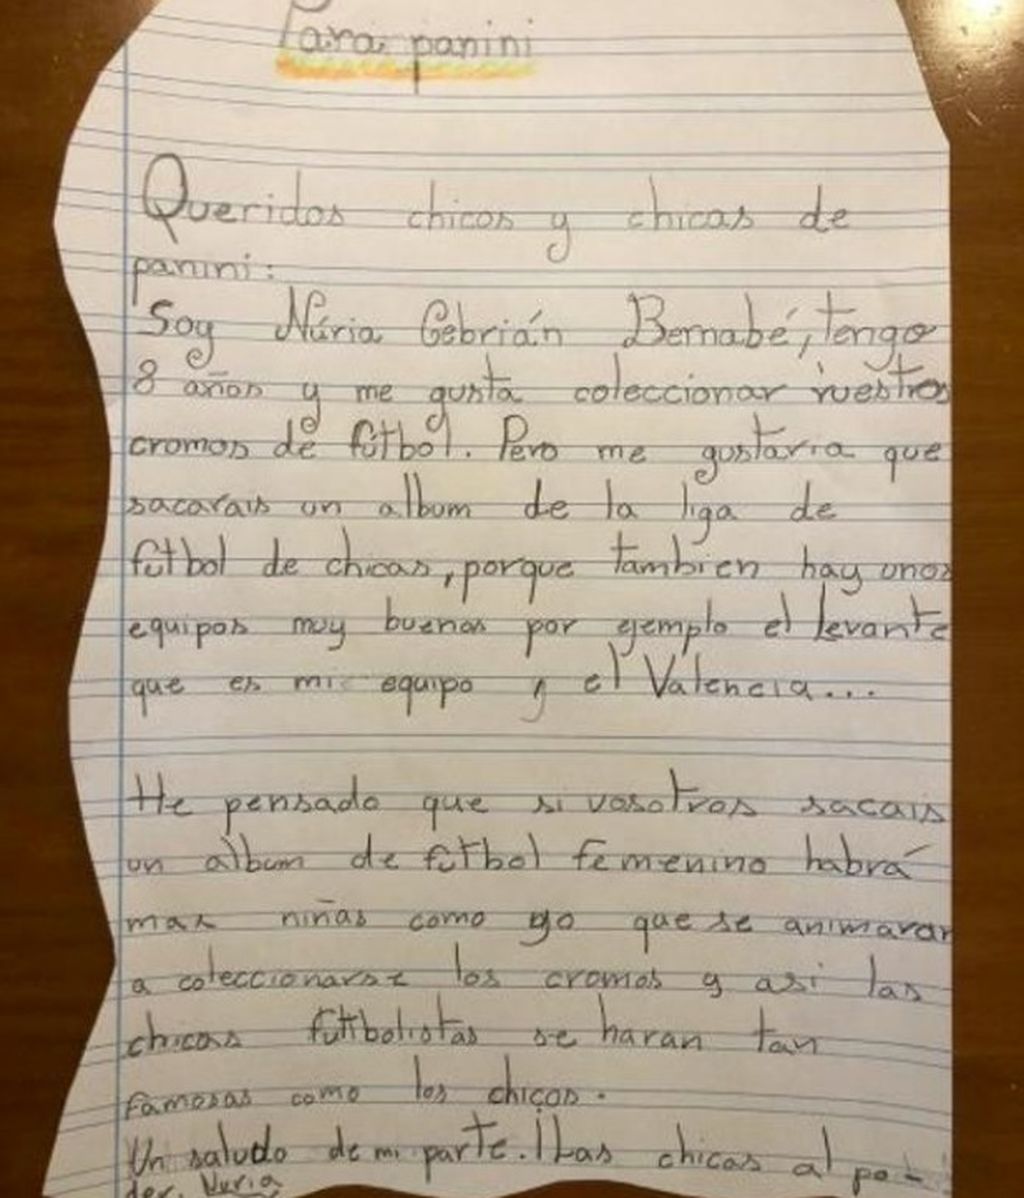 Para panini
Queridos chicos y chicas de
panini:
Soy Núria Cebrián Bernabé, tengo
8 años y me gusta coleccionar vuestros
cromos de fútbol. Pero me gustaria que
sacarais un album de la liga de
fútbol de chicas, porque tambien hay unos
equipos muy buenos por ejemplo el Levante
que es mi equipo y el Valencia...
He pensado que si vosotros sacais
un álbum de fútbol femenino habrá
mas niñas como yo que se animaran
a coleccionarse los cromos y asi las
chicas futbolistas se haran tan
famosas como los chicos.
Un saludo de mi parte. ¡Las chicas al po-
der. Nuria